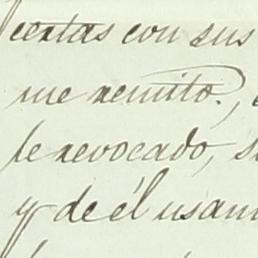 ciertas con sus
me remito.,
te revocado, s
y de él usan